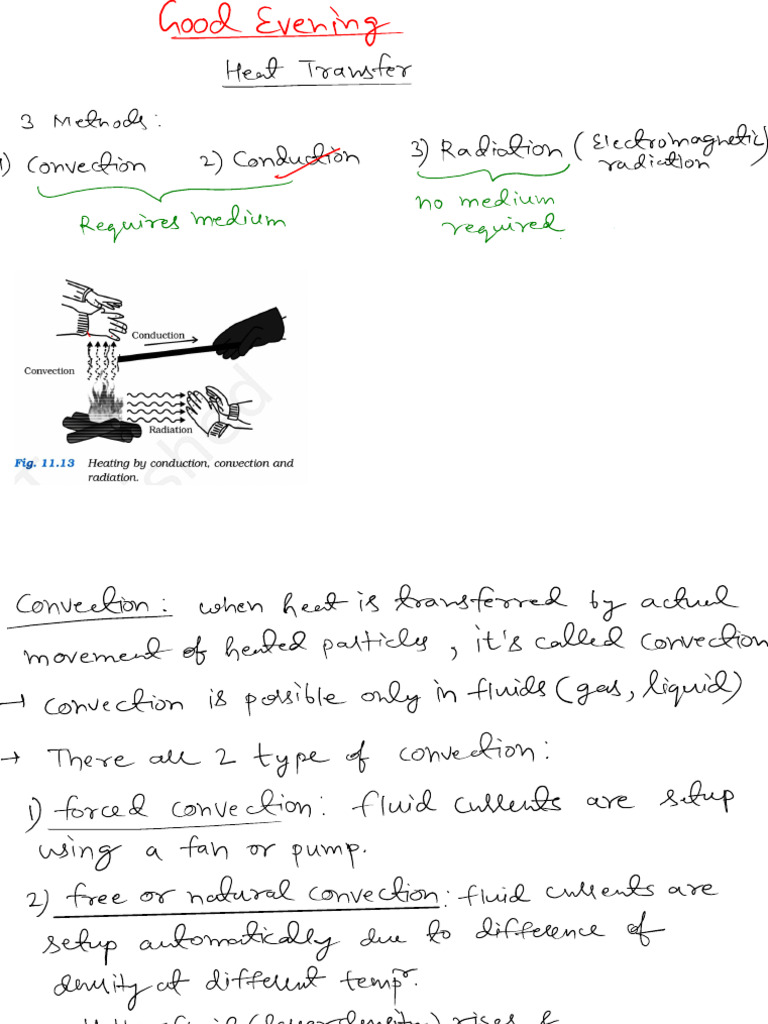 Good Evening
Heat Transfer
3 Methods:
1) Convection 2) Conduction 3) Radiation (Electromagnetic) radiation
Requires medium
no medium
required.
Conduction
Convection
Radiation
Fig. 11.13 Heating by conduction, convection and
radiation.
Convection: when heat is transferred by actual
movement of heated particles, it's called convection
→ convection is possible only in fluids (gas, liquid)
→ There are 2 type of convection:
1) forced convection: fluid currents are setup
using a fan or pump.
2) free or natural convection: fluid currents are
setup automatically due to difference of
density at different tempr.
fluid (lower density) rises &